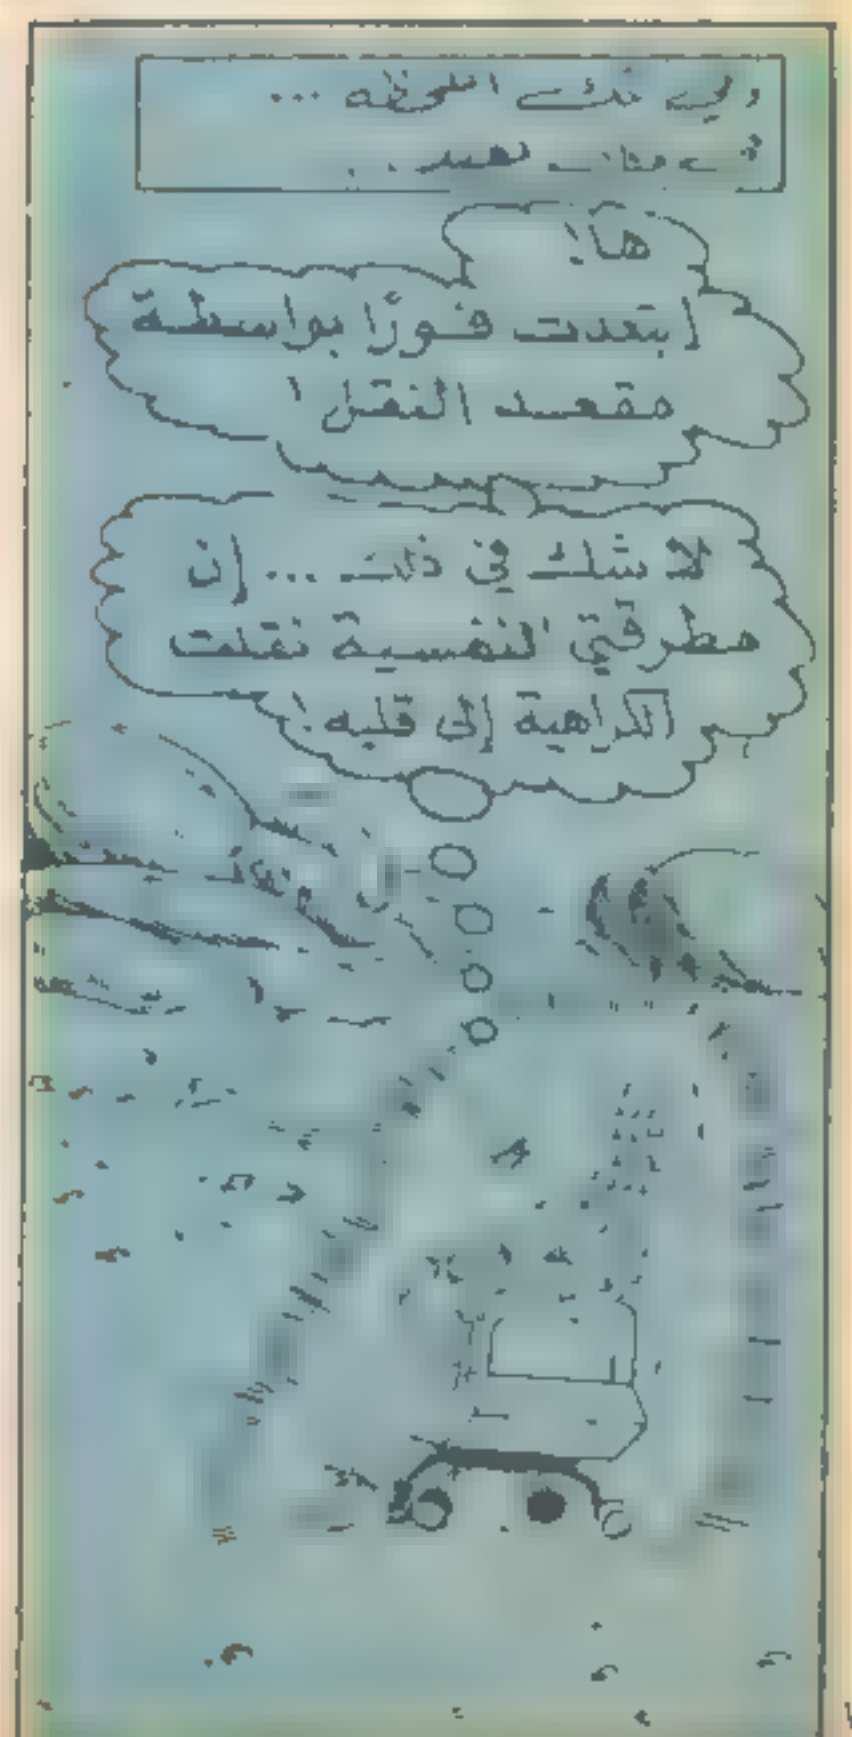 وفي تلك اللحظة ...
في مكان بعيد ..
ها!
ابتعدت فورًا بواسطة
مقعد النقل!
لا شك في ذلك ... إن
مطرقتي النفسية نقلت
الكراهية إلى قلبه!